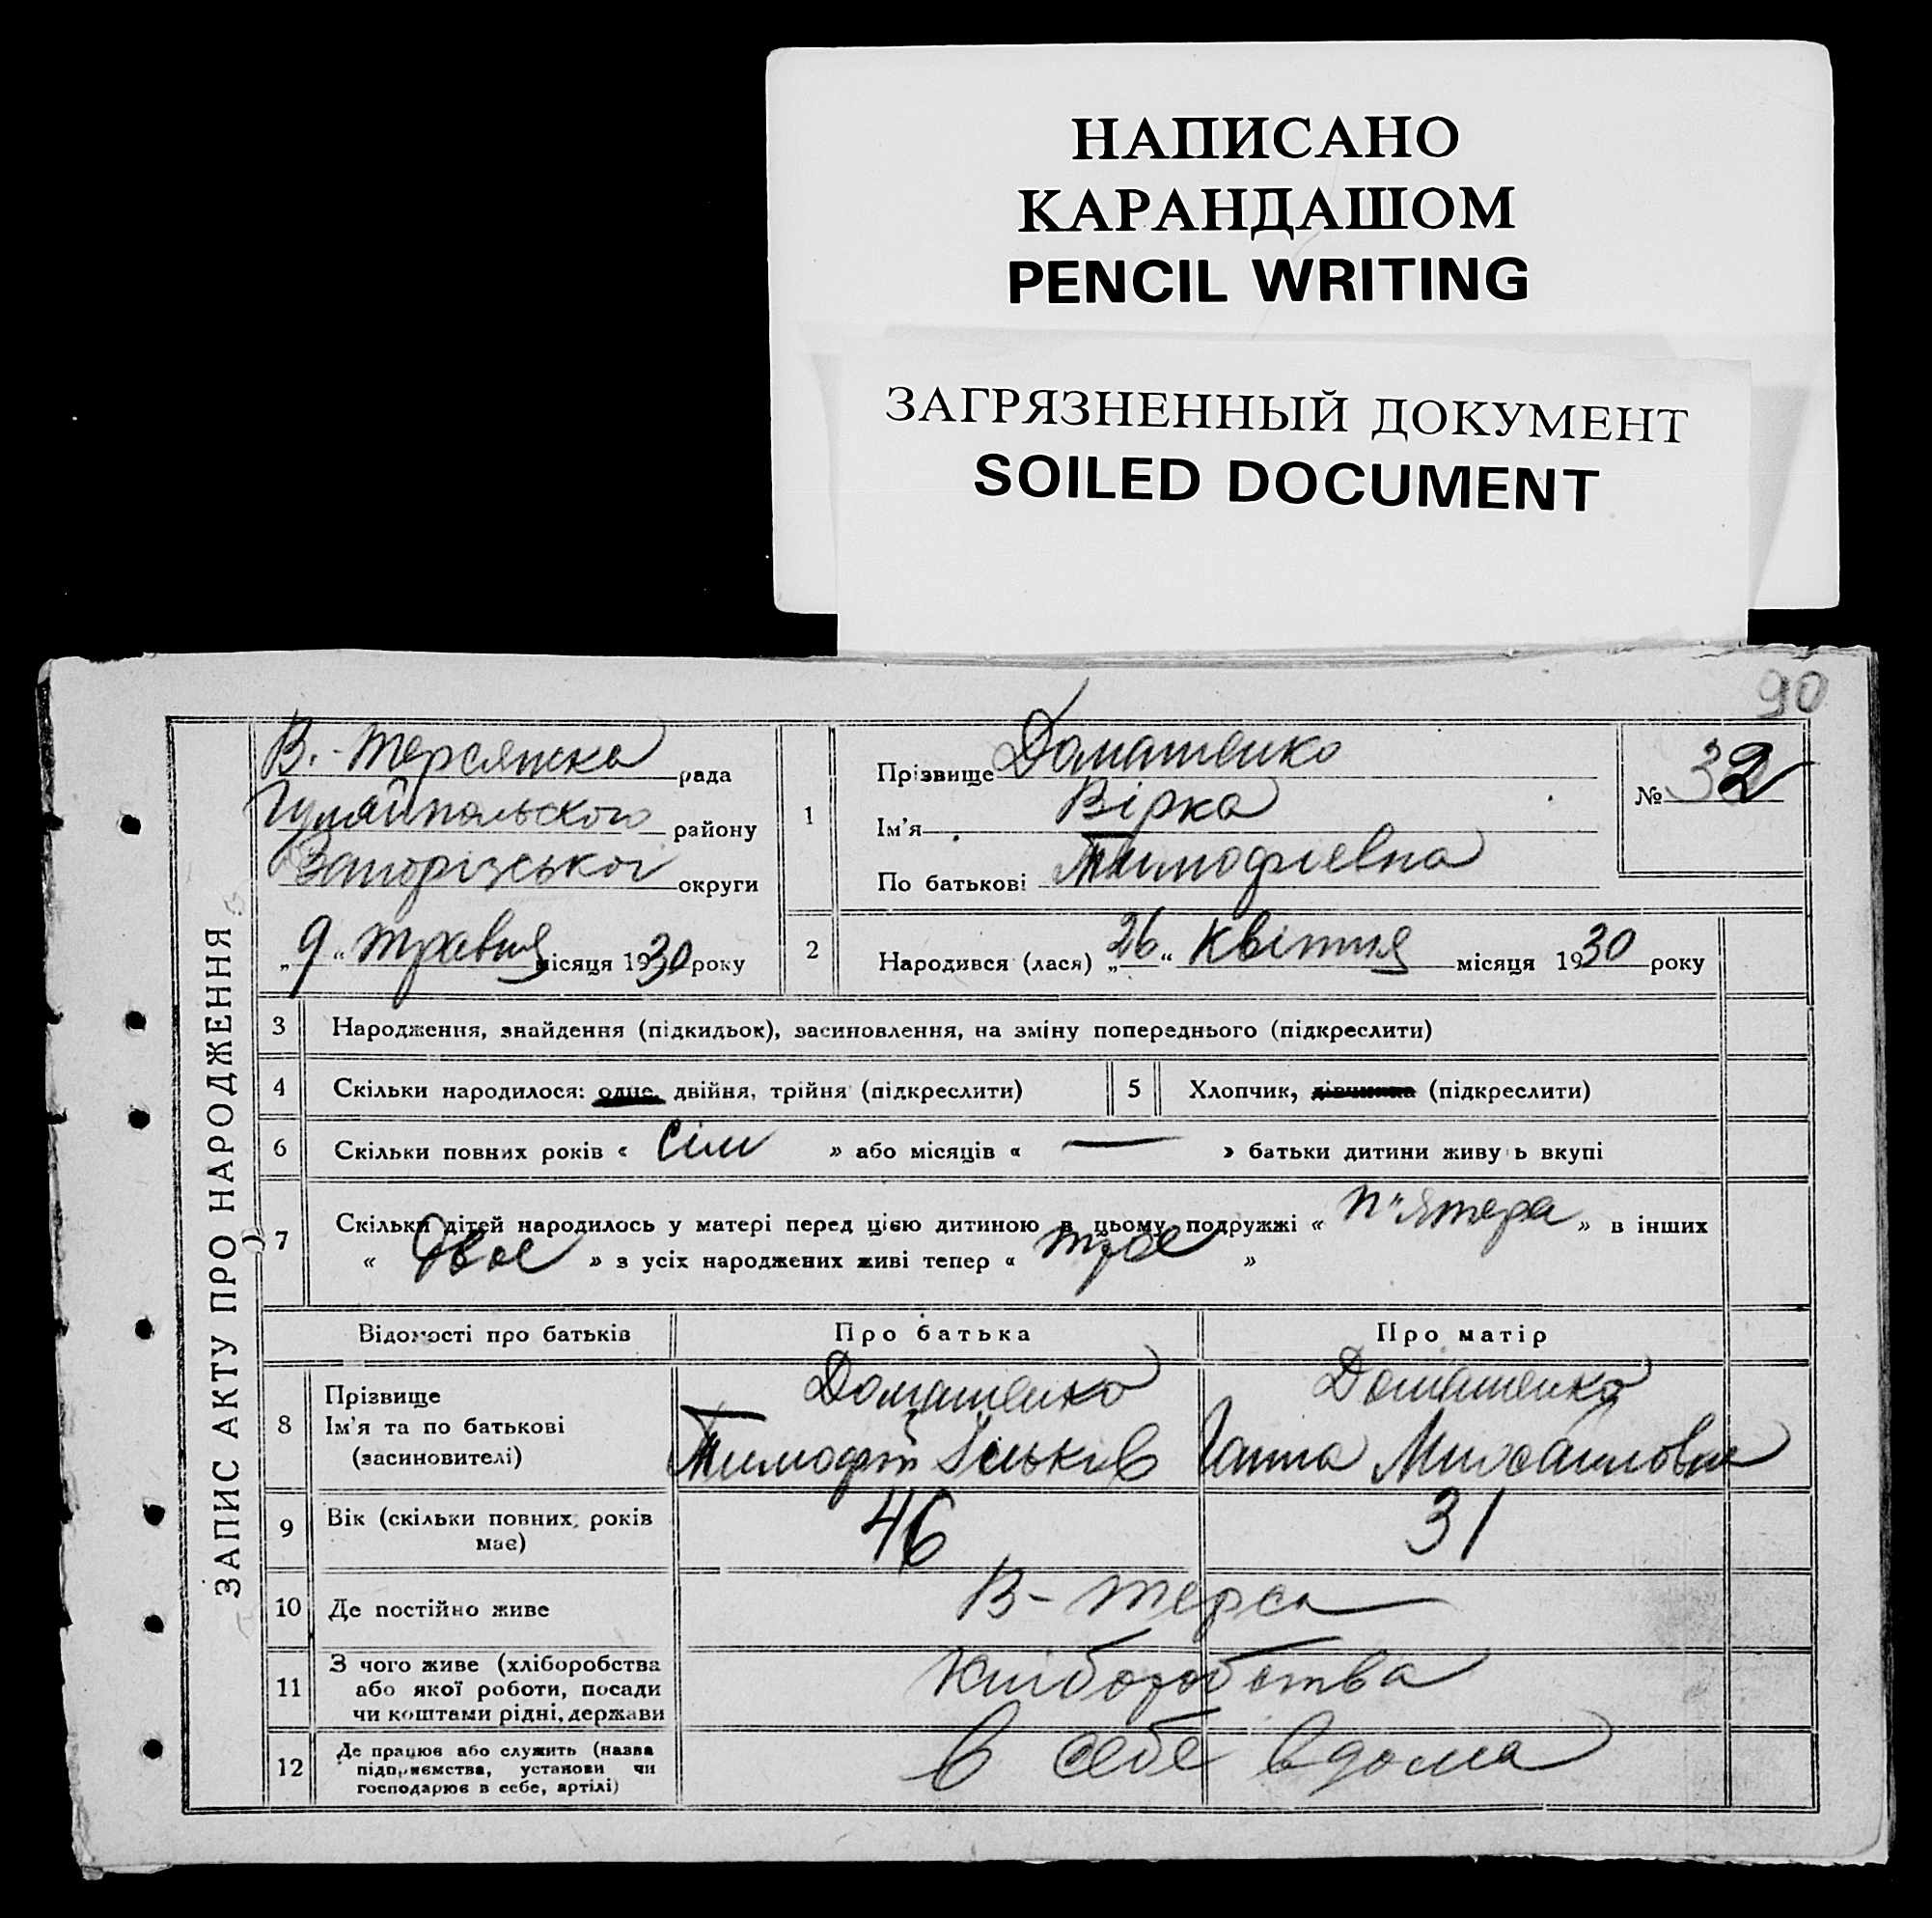 НАПИСАНО
КАРАНДАШОМ
PENCIL WRITING
ЗАГРЯЗНЕННЫЙ ДОКУМЕНТ
SOILED DOCUMENT
90
ЗАПИС АКТУ ПРО НАРОДЖЕННЯ
В.-Терсянска рада
Гуляйпольского району
Запорізської округи
„9“ травня місяця 1930 року
1
Прізвище Доматенко
Ім'я Вірка
По батькові Тимофіевна
№ 32
2 Народився (лася) „26“ Квітня місяця 1930 року
3 Народження, знайдення (підкидьок), засиновлення, на зміну попереднього (підкреслити)
4 Скільки народилося: одне, двійня, трійня (підкреслити) 5 Хлопчик, дівчинка (підкреслити)
6 Скільки повних років « сім » або місяців « — » батьки дитини живуь вкупі
7 Скільки дітей народилось у матері перед цією дитиною в цьому подружжі « п"ятера » в інших
« двое » з усіх народжених живі тепер « трое »
Відомості про батьків Про батька Про матір
8 Прізвище Доматенко Доматенко
Ім'я та по батькові
(засиновителі) Тимофій Ганна Михайловна
9 Вік (скільки повних років
має) 46 31
10 Де постійно живе В-Терса
11 З чого живе (хліборобства
або якої роботи, посади
чи коштами рідні, держави хліборобства
12 Де працює або служить (назва
підприємства, установи чи
господарює в себе, артілі) в себе вдома